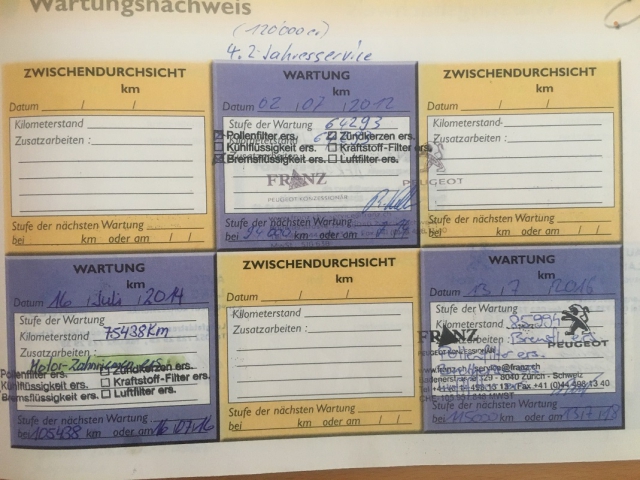 Wartungsnachweis
(120'000er)
4. 2-Jahresservice
ZWISCHENDURCHSICHT
km
Datum / /
Kilometerstand
Zusatzarbeiten :
Stufe der nächsten Wartung
bei km oder am / /
WARTUNG
km
Datum 02 / 07 / 2012
Stufe der Wartung 64293
Kilometerstand
Pollenfilter ers. Zündkerzen ers.
Kühlflüssigkeit ers. Kraftstoff-Filter ers.
Bremsflüssigkeit ers. Luftfilter ers.
FRANZ
PEUGEOT-KONZESSIONÄR
Stufe der nächsten Wartung
bei 94000 km oder am
ZWISCHENDURCHSICHT
km
Datum / /
Kilometerstand
Zusatzarbeiten :
PEUGEOT
Stufe der nächsten Wartung
bei km oder am / /
WARTUNG
km
Datum 16 / Juli / 2014
Stufe der Wartung
Kilometerstand 75438 Km
Zusatzarbeiten :
Motor-Zahnriemen ers.
Pollenfilter ers. Zündkerzen ers.
Kühlflüssigkeit ers. Kraftstoff-Filter ers.
Bremsflüssigkeit ers. Luftfilter ers.
Stufe der nächsten Wartung
bei 105438 km oder am 16/07/16
ZWISCHENDURCHSICHT
km
Datum / /
Kilometerstand
Zusatzarbeiten :
Stufe der nächsten Wartung
bei km oder am / /
WARTUNG
km
Datum 13 / 7 / 2016
Stufe der Wartung
Kilometerstand 85994
Zusatzarbeiten :
FRANZ PEUGEOT
service@franz.ch
Badenerstrasse 329 - 8040 Zürich - Schweiz
Fax +41 (0)44 498 13 40
MWST
Stufe der nächsten Wartung
bei 115000 km oder am 13/7/18